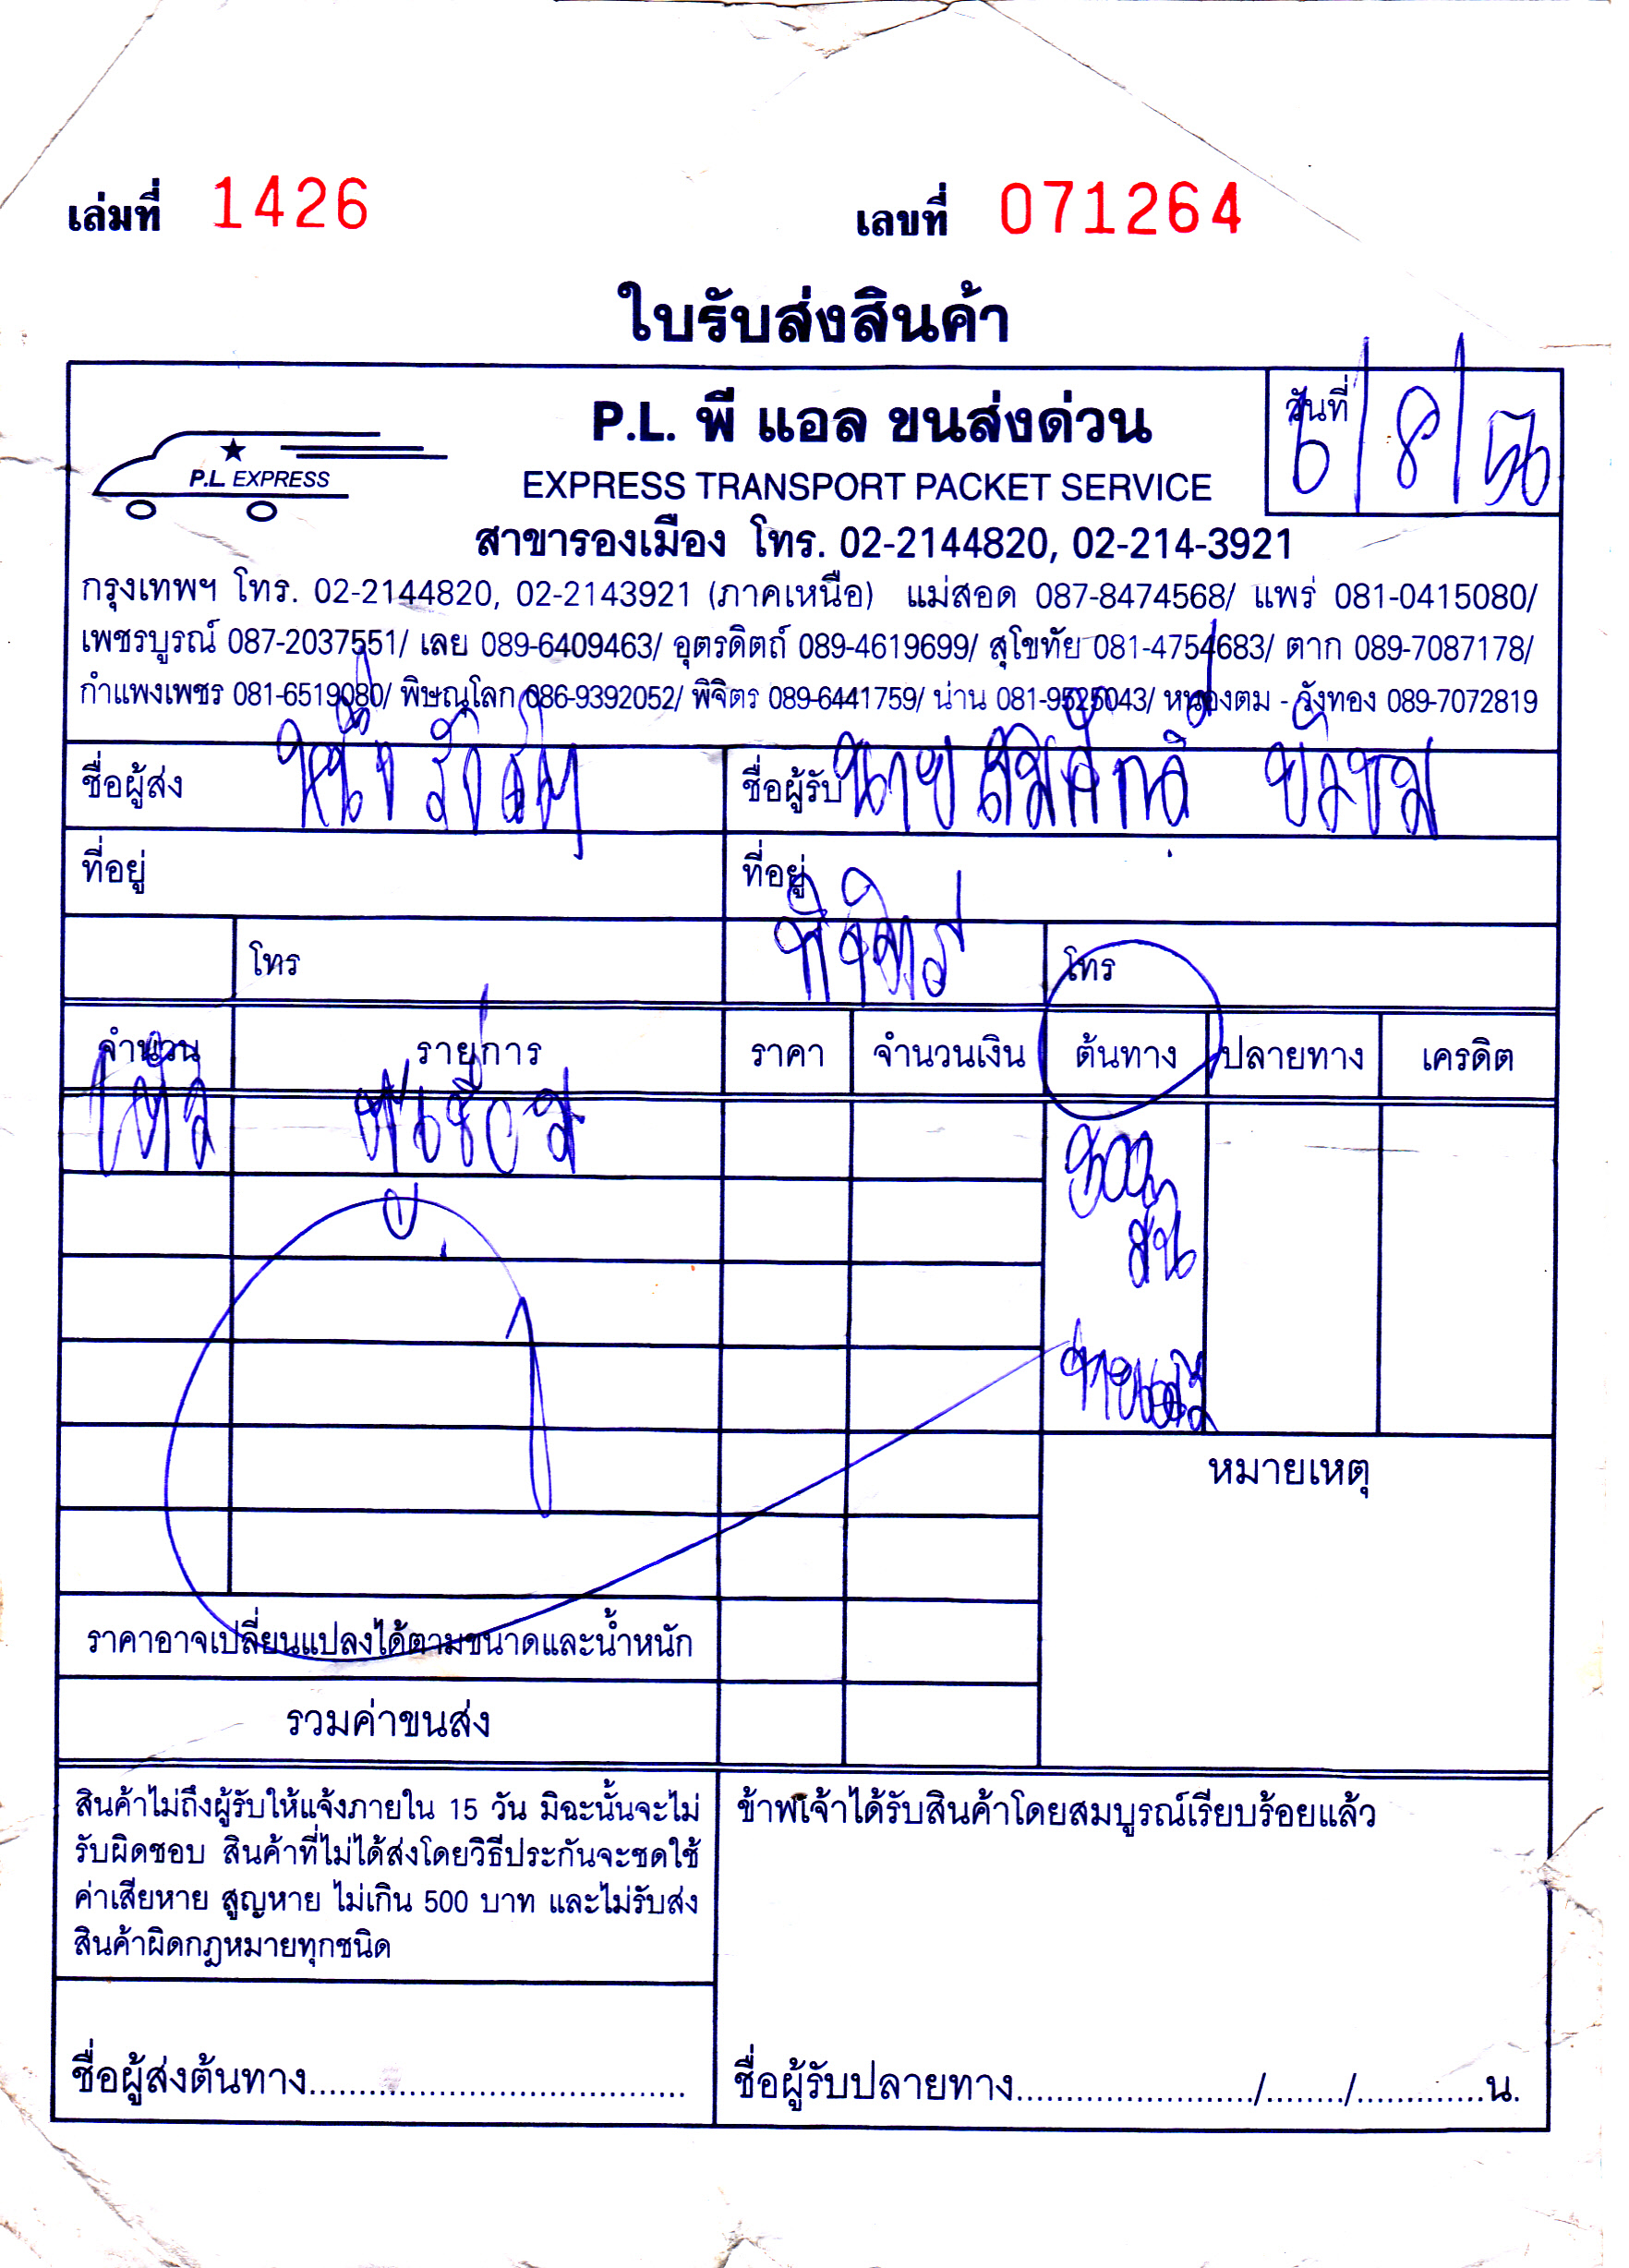 เล่มที่ 1426 เลขที่ 071264
ใบรับส่งสินค้า
P.L. EXPRESS
P.L. พี แอล ขนส่งด่วน
วันที่ 6/8/56
EXPRESS TRANSPORT PACKET SERVICE
สาขารองเมือง โทร. 02-2144820, 02-214-3921
กรุงเทพฯ โทร. 02-2144820, 02-2143921 (ภาคเหนือ) แม่สอด 087-8474568/ แพร่ 081-0415080/
เพชรบูรณ์ 087-2037551/ เลย 089-6409463/ อุตรดิตถ์ 089-4619699/ สุโขทัย 081-4754683/ ตาก 089-7087178/
กำแพงเพชร 081-6519080/ พิษณุโลก 086-9392052/ พิจิตร 089-6441759/ น่าน 081-9525043/ หนองตม - วังทอง 089-7072819
ชื่อผู้ส่ง ชื่อผู้รับ นาย สมศักดิ์
ที่อยู่ ที่อยู่ พิจิตร
โทร โทร
จำนวน รายการ ราคา จำนวนเงิน ต้นทาง ปลายทาง เครดิต
หมายเหตุ
ราคาอาจเปลี่ยนแปลงได้ตามขนาดและน้ำหนัก
รวมค่าขนส่ง
สินค้าไม่ถึงผู้รับให้แจ้งภายใน 15 วัน มิฉะนั้นจะไม่
รับผิดชอบ สินค้าที่ไม่ได้ส่งโดยวิธีประกันจะชดใช้
ค่าเสียหาย สูญหาย ไม่เกิน 500 บาท และไม่รับส่ง
สินค้าผิดกฎหมายทุกชนิด
ข้าพเจ้าได้รับสินค้าโดยสมบูรณ์เรียบร้อยแล้ว
ชื่อผู้ส่งต้นทาง...................................... ชื่อผู้รับปลายทาง......................../......../.............น.